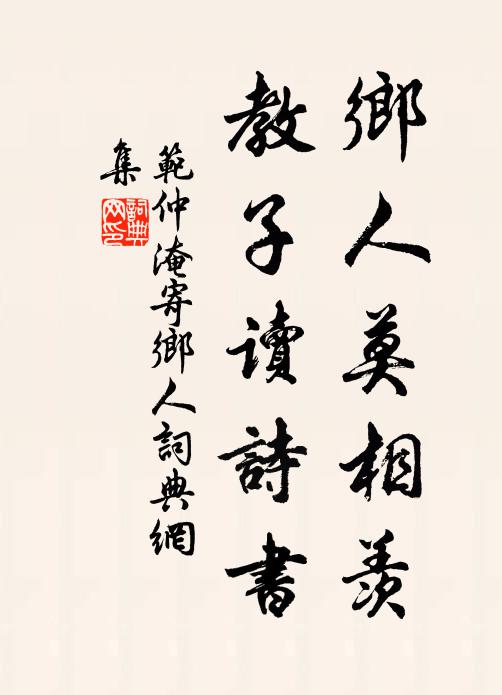 鄉人莫相羨
教子讀詩書
範仲淹寄鄉人詞典網
集
詞典
网印